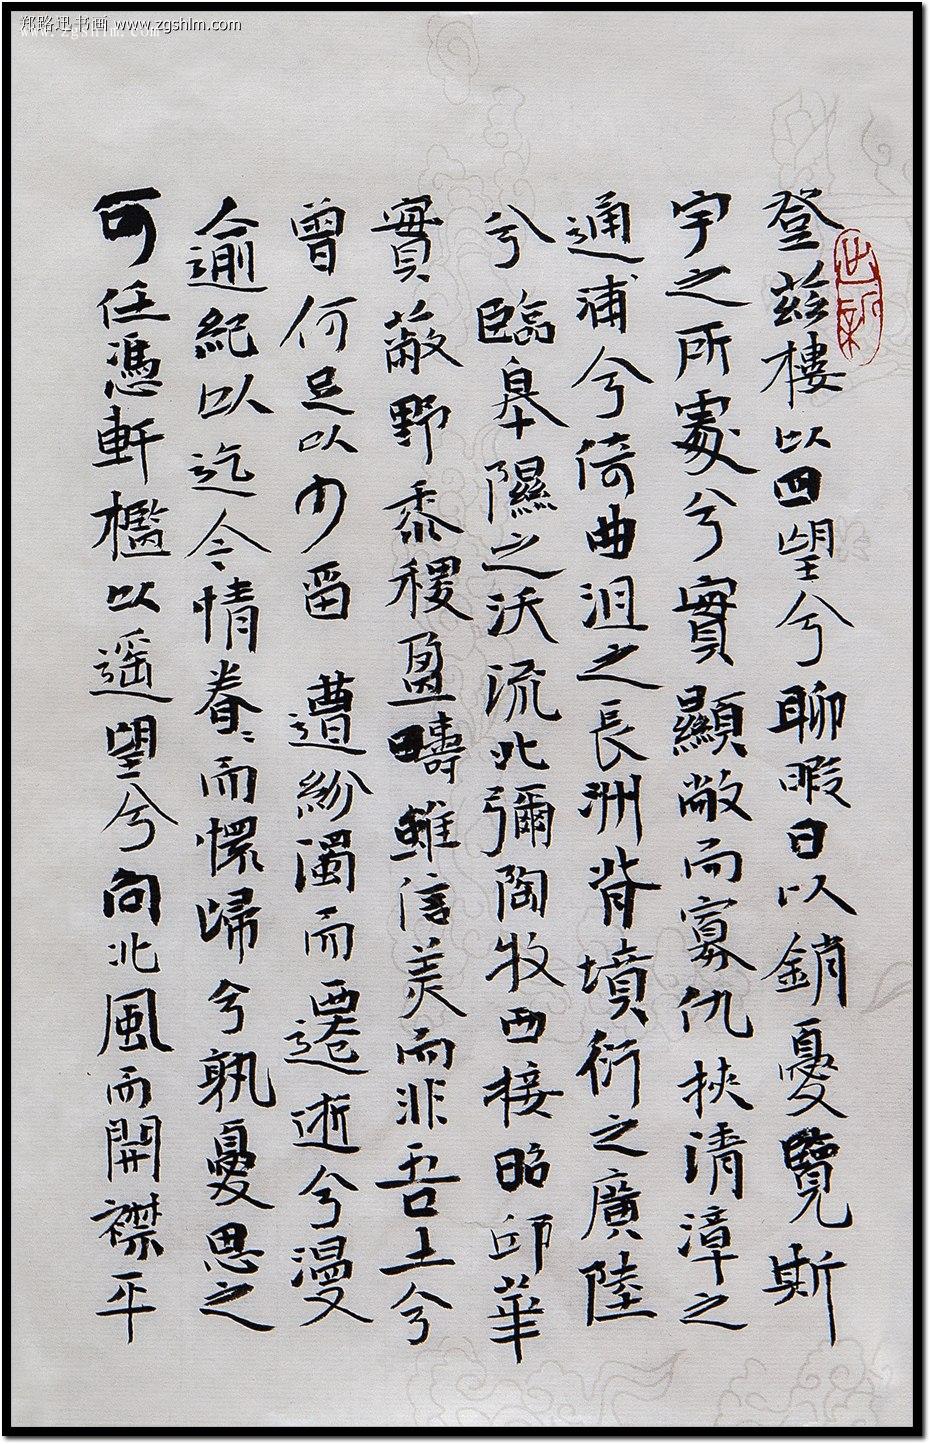 郑路迅书画 www.zgshlm.com
登茲樓以四望兮聊暇日以銷憂覽斯
宇之所處兮實顯敞而寡仇挾清漳之
通浦兮倚曲沮之長洲背墳衍之廣陸
兮臨皋隰之沃流北彌陶牧西接昭邱華
實蔽野黍稷盈疇雖信美而非吾土兮
曾何足以少留 遭紛濁而遷逝兮漫
人逾紀以迄今情眷〻而懷歸兮孰憂思之
可任憑軒檻以遥望兮向北風而開襟平